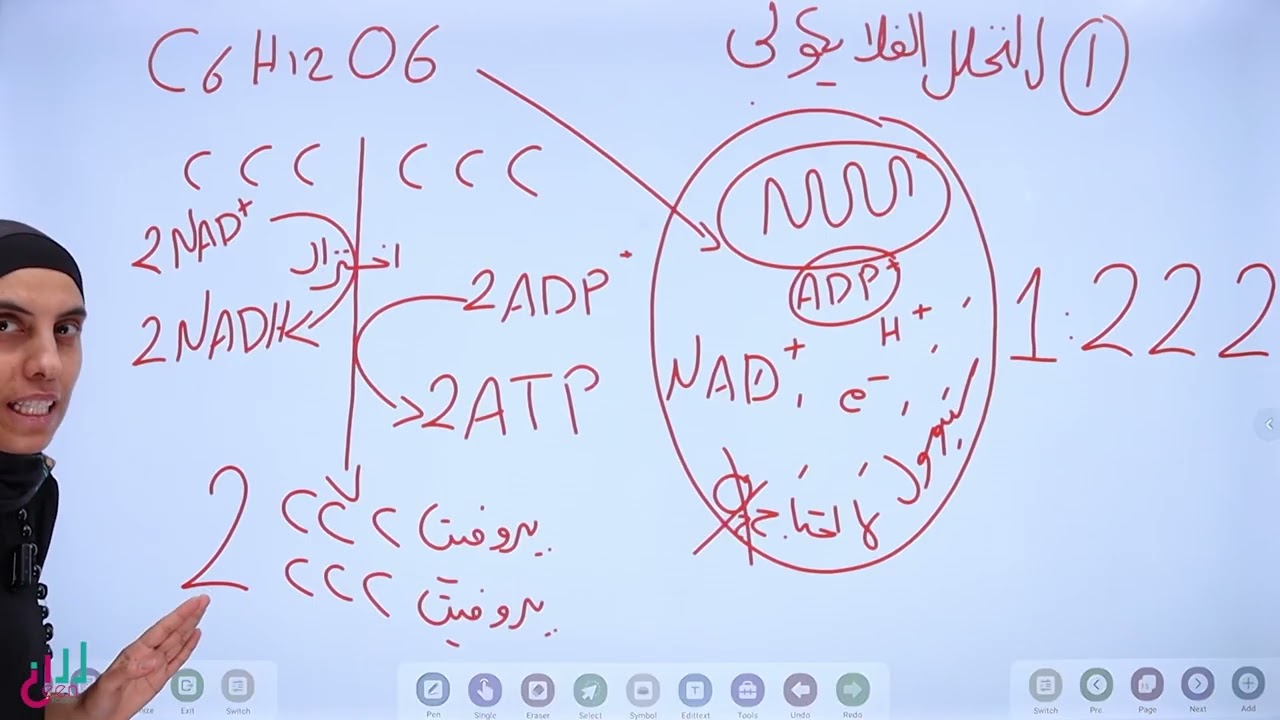 ① التحلل الغلايكولي
C6H12O6
C C C | C C C
2NAD+
اختزال
2NADH
2ADP+
2ATP
2
C C C بيروفيت
C C C بيروفيت
ADP+
H+ ,
NAD+ , e- ,
سيتوبول
لا تحتاج
1:222
Exit
Switch
Pen
Single
Eraser
Select
Symbol
Edittext
Tools
Undo
Redo
Switch
Pre
Page
Next
Add